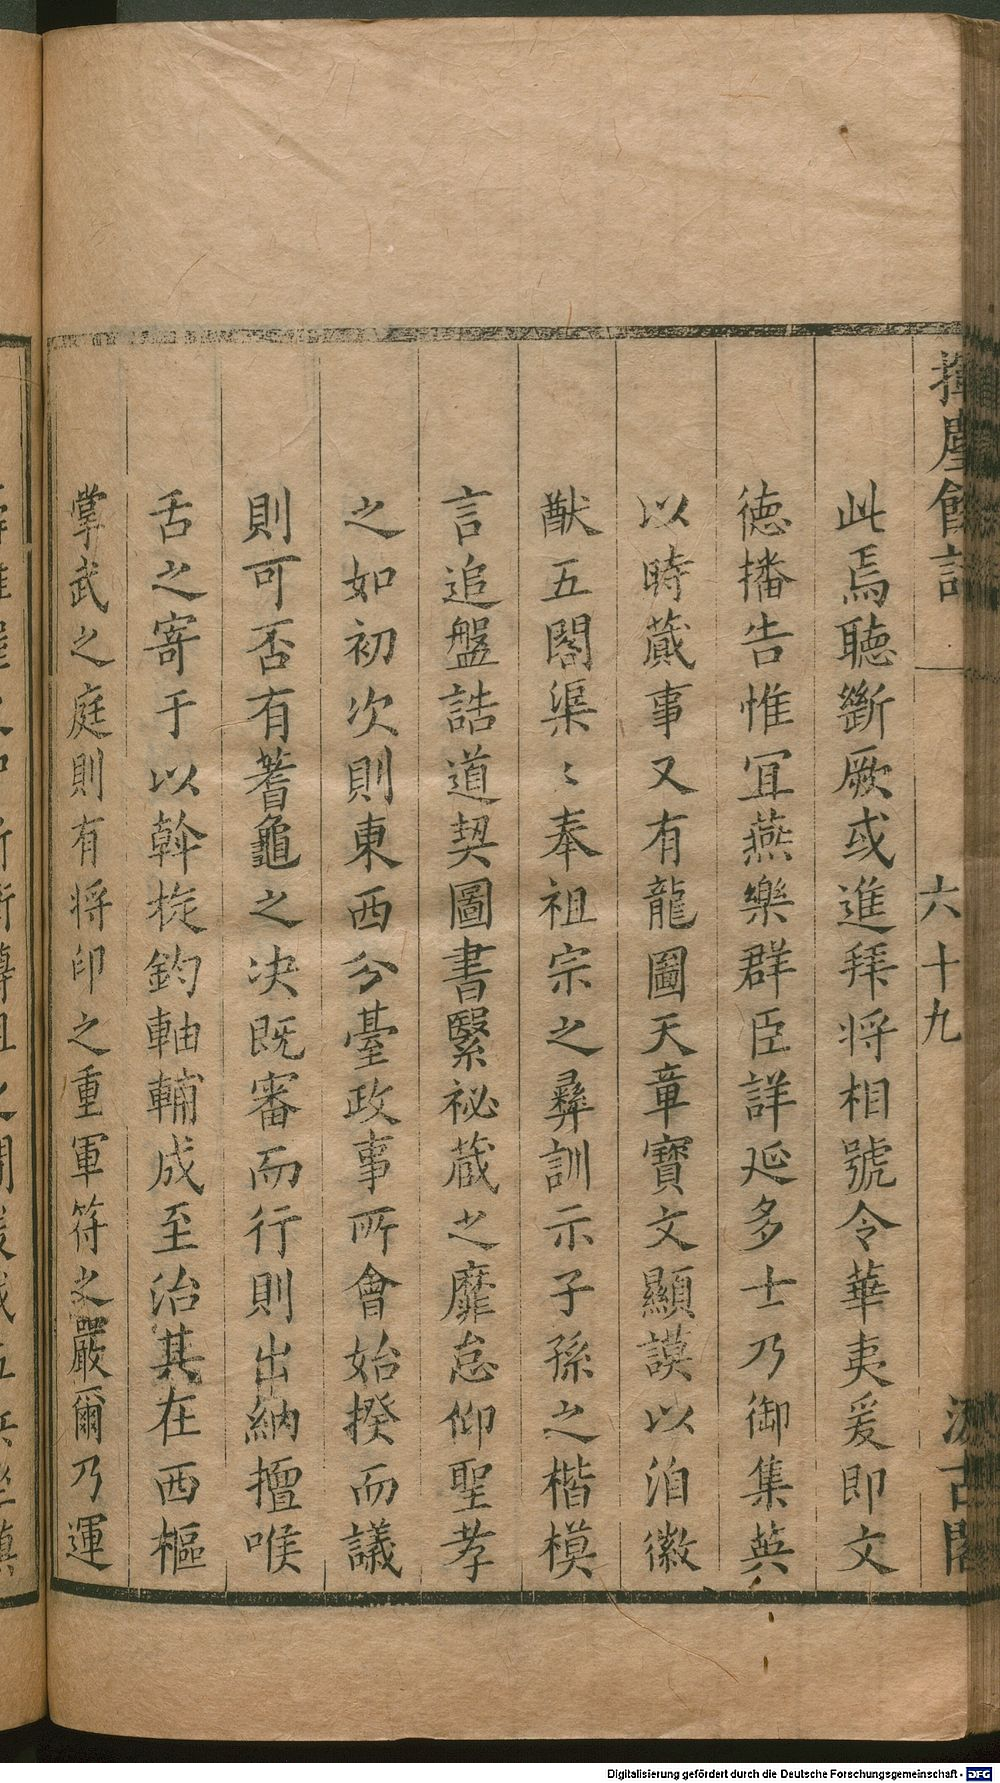 揮麈餘話
六十九
汲古閣
此焉聽斷厥或進拜将相號令華夷爰即文
徳播告惟冝燕樂群臣詳延多士乃御集英
以時蕆事又有龍圖天章寶文顯謨以洎徽
猷五閣渠〻奉祖宗之彛訓示子孫之楷模
言追盤誥道契圖書緊祕蔵之靡怠仰聖孝
之如初次則東西分臺政事所會始揆而議
則可否有蓍龜之决既審而行則出納擅喉
舌之寄于以斡旋鈞軸輔成至治其在西樞
掌武之庭則有将印之重軍符之嚴爾乃運
Digitalisierung gefördert durch die Deutsche Forschungsgemeinschaft - DFG